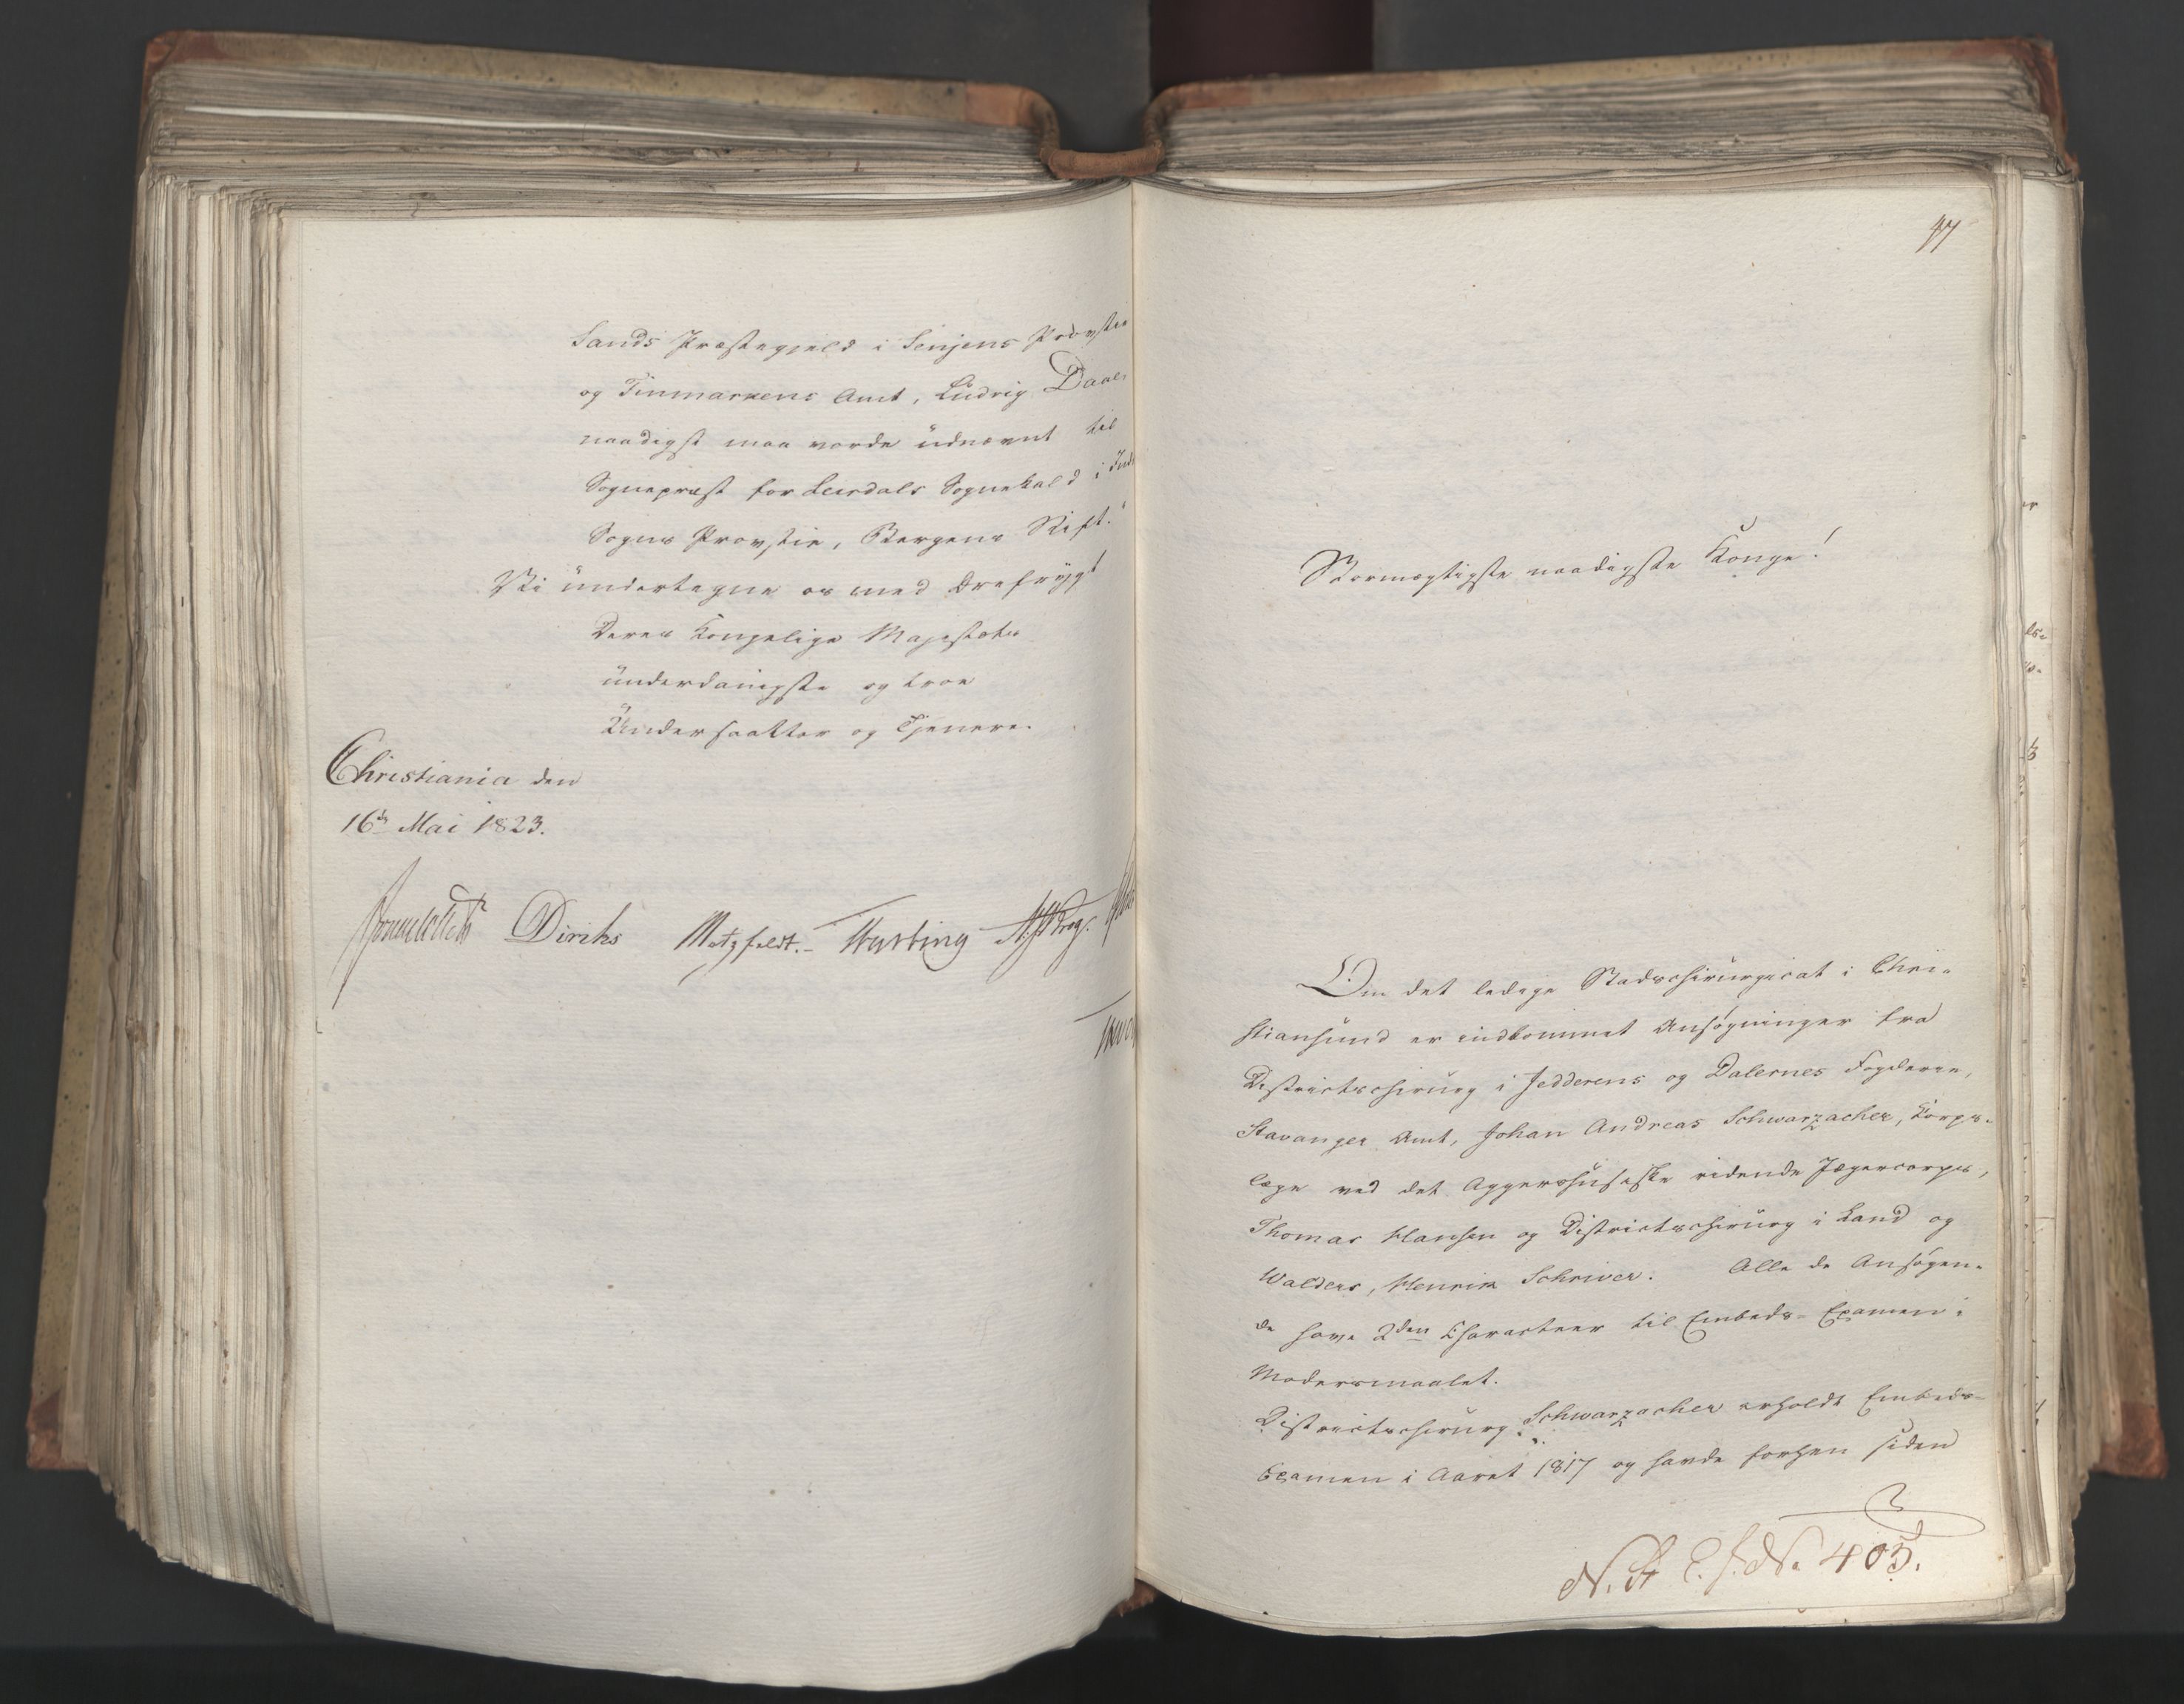 Sands Præstegjeld i Senjens Provstie
og Finmarkens Amt, Ludvig Daae,
naadigst maa vorde udnævnt til
Sognepræst for Leirdals Sognekald i Indre
Sogns Provstie, Bergens Stift."
Vi undertegne os med Ærefrygt
Deres Kongelige Majestæts
underdanigste og troe
Undersaatter og Tjenere.
Christiania den
16de Mai 1823.
Sommerhielm Diriks Motzfeldt. Hersting
47
Stormægtigste naadigste Konge!
Om det ledige Stadschirurgicat i Chri-
stiansund er indkommet Ansøgninger fra
Districtschirurg i Jedderens og Dalernes Fogderie,
Stavanger Amt, Johan Andreas Schwarzacher, Corps-
læge ved det Aggershusiske ridende Jægercorps,
Thomas Hansen og Districtschirurg i Land og
Walders, Henrik Schriver. Alle de Ansøgen-
de have 2den Characteer til Embeds-Examen i
Modersmaalet.
Districtschirurg Schwarzacher erholdt Embeds-
Examen i Aaret 1817 og havde forhen siden
N. St. E. J. No 405.